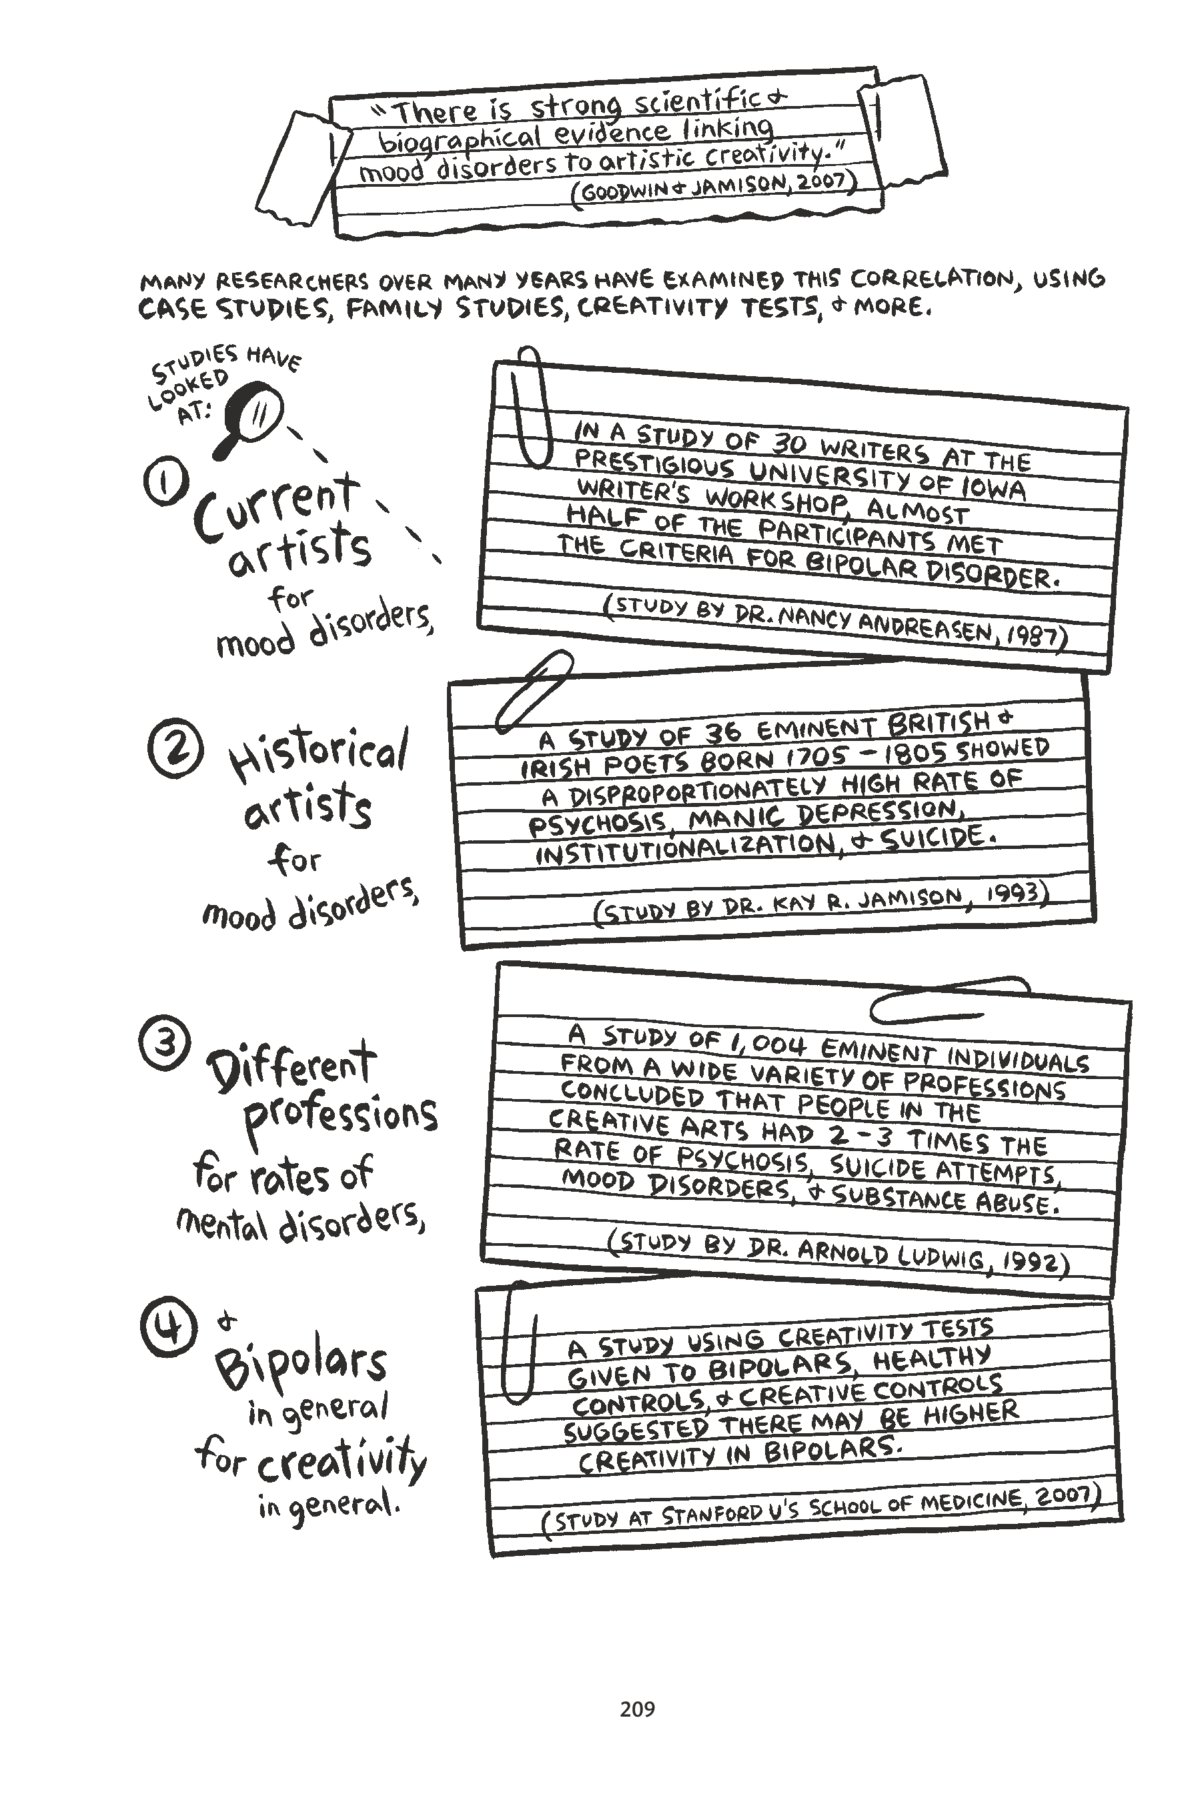 "There is strong scientific &
biographical evidence linking
mood disorders to artistic creativity."
(GOODWIN & JAMISON, 2007)
MANY RESEARCHERS OVER MANY YEARS HAVE EXAMINED THIS CORRELATION, USING
CASE STUDIES, FAMILY STUDIES, CREATIVITY TESTS, & MORE.
STUDIES HAVE
LOOKED
AT:
1 Current
artists
for
mood disorders,
IN A STUDY OF 30 WRITERS AT THE
PRESTIGIOUS UNIVERSITY OF IOWA
WRITER'S WORKSHOP, ALMOST
HALF OF THE PARTICIPANTS MET
THE CRITERIA FOR BIPOLAR DISORDER.
(STUDY BY DR. NANCY ANDREASEN, 1987)
2 Historical
artists
for
mood disorders,
A STUDY OF 36 EMINENT BRITISH &
IRISH POETS BORN 1705 - 1805 SHOWED
A DISPROPORTIONATELY HIGH RATE OF
PSYCHOSIS, MANIC DEPRESSION,
INSTITUTIONALIZATION, & SUICIDE.
(STUDY BY DR. KAY R. JAMISON, 1993)
3 Different
professions
for rates of
mental disorders,
A STUDY OF 1,004 EMINENT INDIVIDUALS
FROM A WIDE VARIETY OF PROFESSIONS
CONCLUDED THAT PEOPLE IN THE
CREATIVE ARTS HAD 2-3 TIMES THE
RATE OF PSYCHOSIS, SUICIDE ATTEMPTS,
MOOD DISORDERS, & SUBSTANCE ABUSE.
(STUDY BY DR. ARNOLD LUDWIG, 1992)
4 &
Bipolars
in general
for creativity
in general.
A STUDY USING CREATIVITY TESTS
GIVEN TO BIPOLARS, HEALTHY
CONTROLS, & CREATIVE CONTROLS
SUGGESTED THERE MAY BE HIGHER
CREATIVITY IN BIPOLARS.
(STUDY AT STANFORD U'S SCHOOL OF MEDICINE, 2007)
209